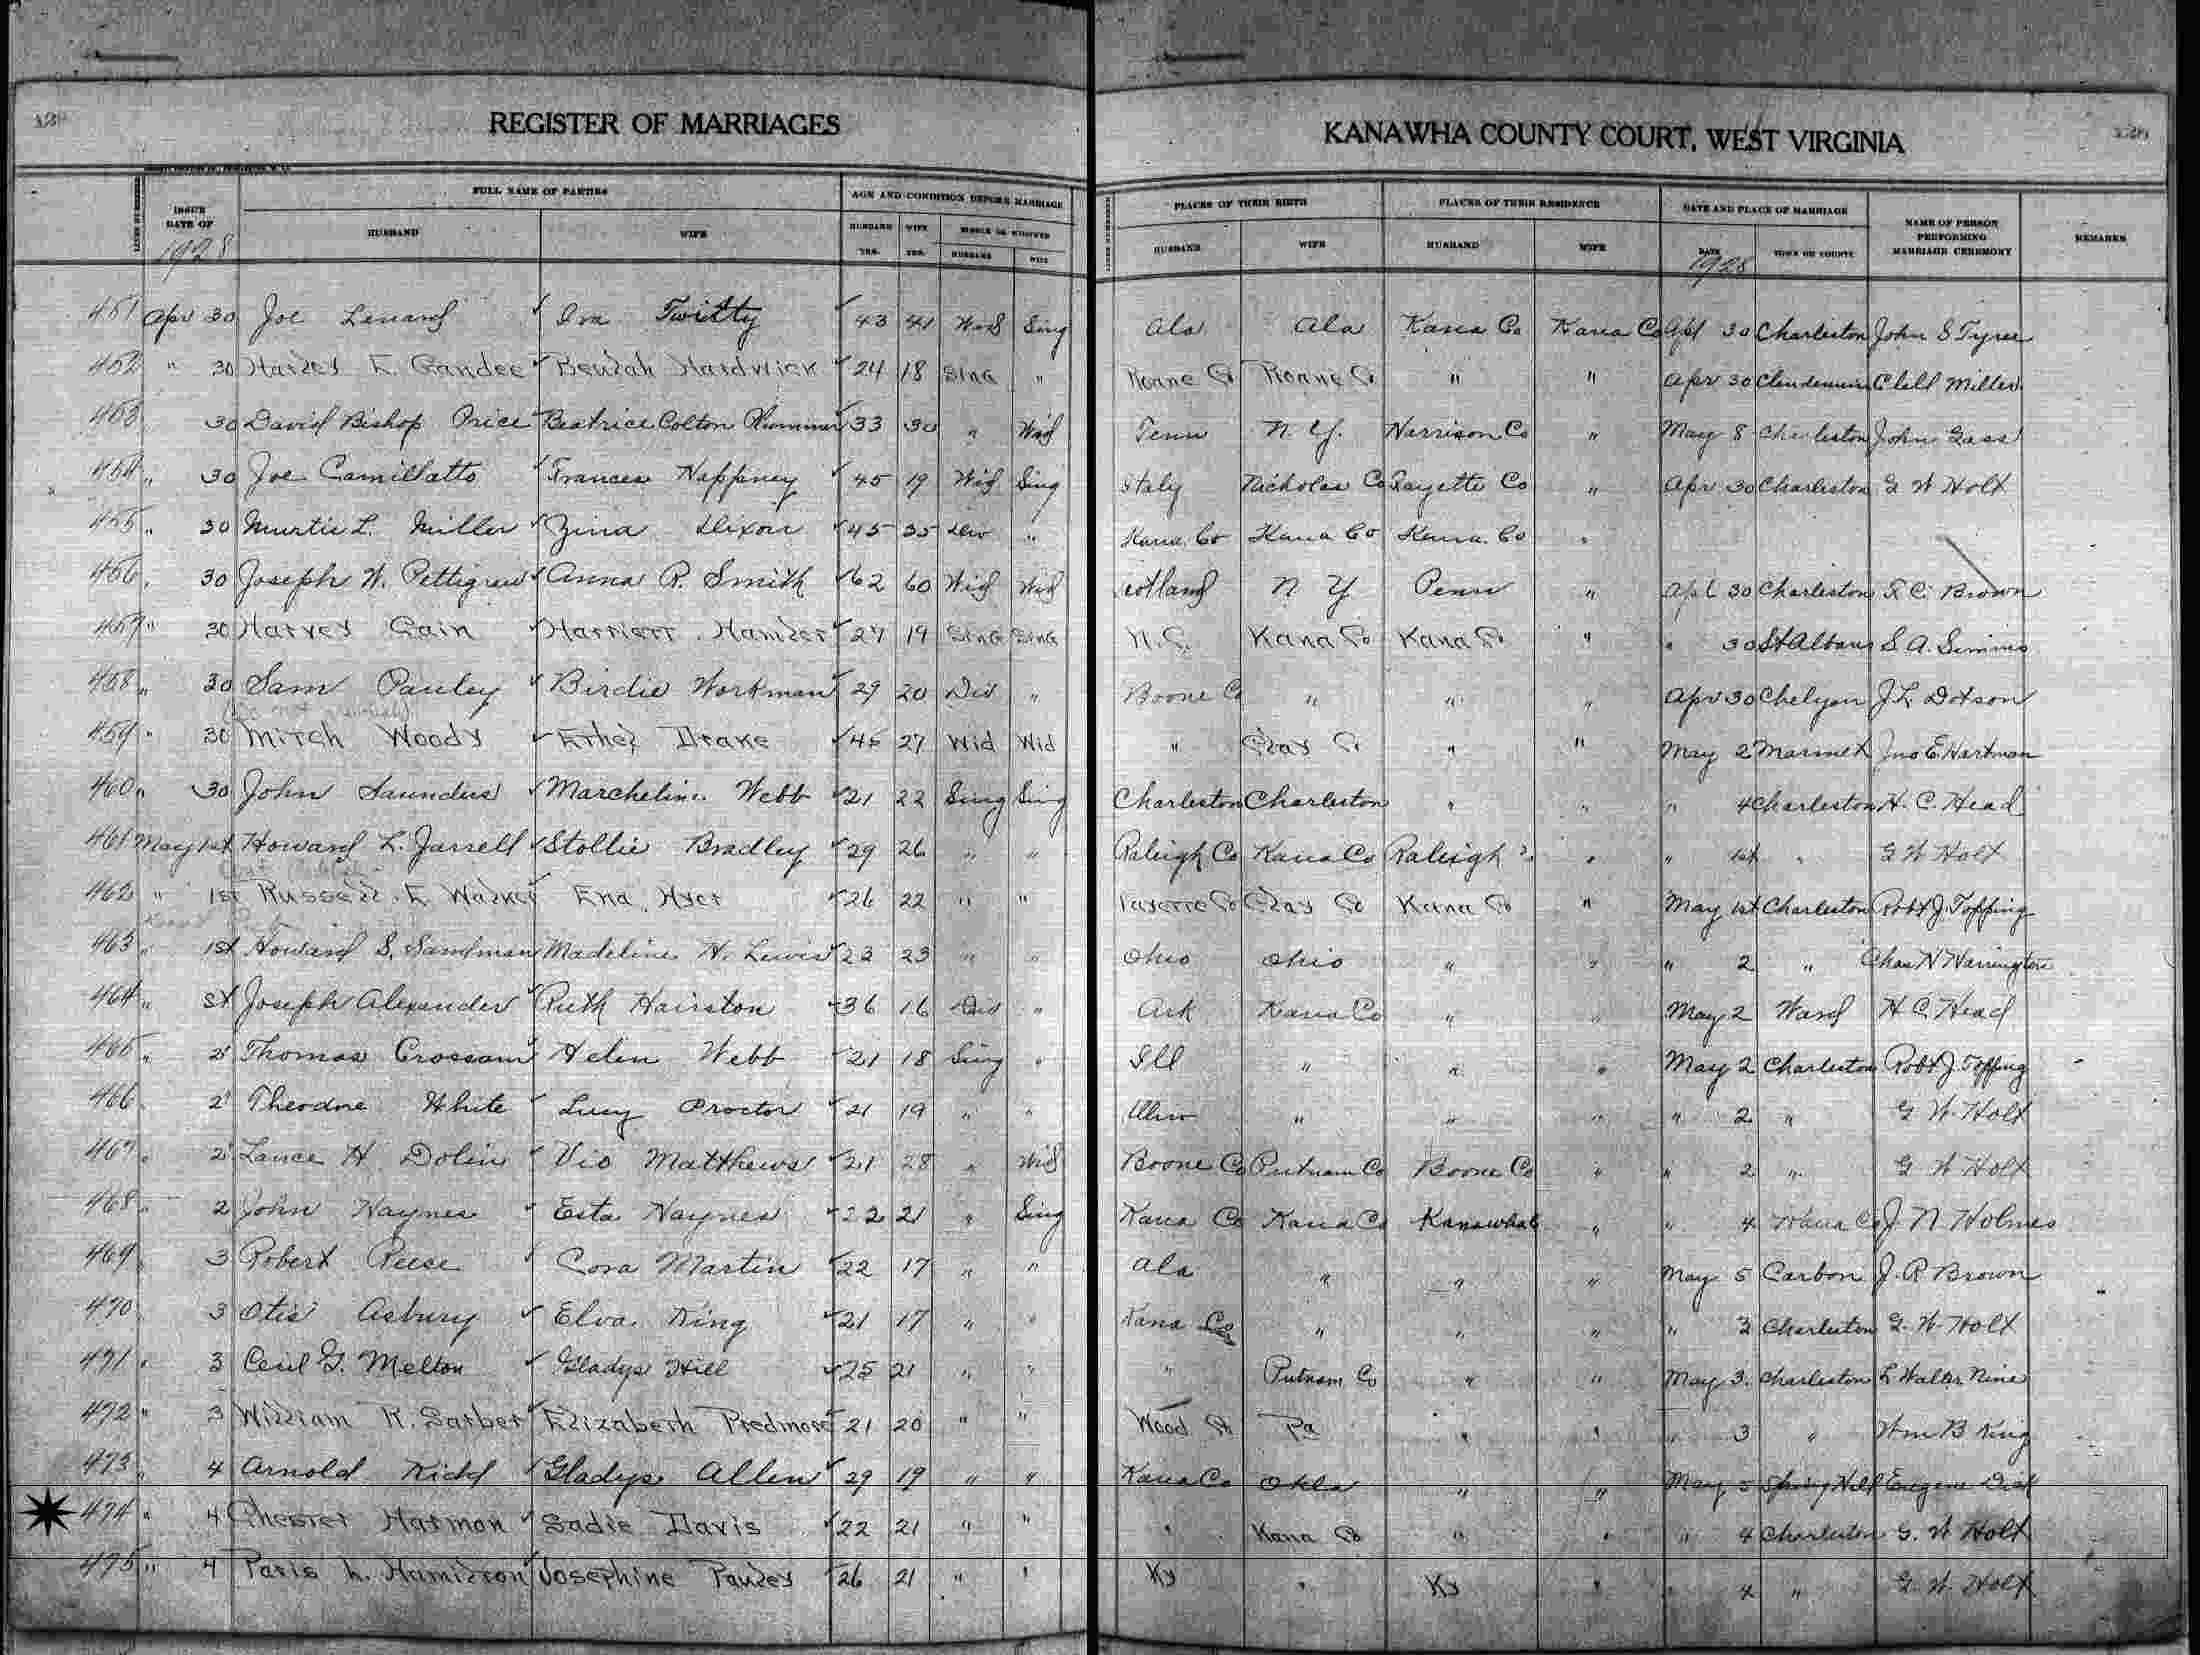 REGISTER OF MARRIAGES
KANAWHA COUNTY COURT, WEST VIRGINIA
ISSUE DATE OF 1928 FULL NAME OF PARTIES AGE AND CONDITION BEFORE MARRIAGE PLACES OF THEIR BIRTH PLACES OF THEIR RESIDENCE DATE AND PLACE OF MARRIAGE NAME OF PERSON PERFORMING MARRIAGE CEREMONY REMARKS
HUSBAND WIFE HUSBAND YRS. WIFE YRS. SINGLE OR WIDOWED HUSBAND WIFE HUSBAND WIFE HUSBAND WIFE DATE 1928 TOWN OR COUNTY
451 Apr 30 Joe Lenard Iva Twitty 43 41 Wid Sing Ala Ala Kana Co Kana Co Apl 30 Charleston John S Tyree
452 " 30 Harley E. Candee Beulah Hardwick 24 18 Sing " Roane Co Roane Co " " Apr 30 Clendennin Clell Miller
453 30 David Bishop Price Beatrice Colton 33 30 " Wid Tenn N. Y. Harrison Co " May 8 Charleston John Gass
454 " 30 Joe Camillatto Frances Nappney 45 19 Wid Sing Italy Nicholas Co Fayette Co " Apr 30 Charleston G W Holt
455 " 30 Murtie L. Miller Zina Dixon 45 35 Div " Kana. Co Kana Co Kana. Co "
456 " 30 Joseph W. Pettigrew Anna R. Smith 62 60 Wid Wid Scotland N Y Penn " Apl 30 Charleston F. C. Brown
457 " 30 Harvey Cain Harriett Hamlet 27 19 Sing Sing N. C. Kana Co Kana Co " " 30 St Albans S. A. Simms
458 " 30 Sam Pauley Birdie Workman 29 20 Div " Boone Co " " " Apr 30 Chelyan J L Dotson
459 " 30 Mitch Woody Ethel Drake 45 27 Wid Wid " Clay Co " " May 2 Marmet Jno E. Hartman
460 " 30 John Saunders Marcheline Webb 21 22 Sing Sing Charleston Charleston " " " 4 Charleston H. C. Head
461 May 1st Howard L. Jarrell Stollie Bradley 29 26 " " Raleigh Co Kana Co Raleigh " " 1st " G W Holt
462 " 1st Russell E Walker Ena Ayer 26 22 " " Fayette Co Clay Co Kana Co " May 1st Charleston Robt J. Topping
463 " 1st Howard S. Sandman Madeline H. Lewis 22 23 " " Ohio Ohio " " " 2 " Chas N Harrington
464 " st Joseph Alexander Ruth Hairston 36 16 Div " Ark Kana Co " " May 2 Ward H C Head
465 " 2 Thomas Crossam Helen Webb 21 18 Sing " Ill " " " May 2 Charleston Robt J. Topping
466 " 2 Theodore White Lucy Proctor 21 19 " " Ohio " " " " 2 " G W. Holt
467 " 2 Lance H Dolin Vio Matthews 21 28 " Wid Boone Co Putnam Co Boone Co " " 2 " G W Holt
468 " 2 John Haynes Esta Haynes 22 21 " Sing Kana Co Kana Co Kanawha Co " " 4 Kana Co J. N Holmes
469 " 3 Robert Reese Cora Martin 22 17 " " Ala " " " May 5 Carbon J. R Brown
470 3 Otis Asbury Elva King 21 17 " " Kana Co " " " " 3 Charleston G. W. Holt
471 " 3 Cecil G. Melton Gladys Hill 25 21 " " " Putnam Co " " May 3. Charleston L Walter Nine
472 " 3 William R. Sarber Elizabeth Predmore 21 20 " " Wood Co Pa " " " 3 " Wm B King
473 " 4 Arnold Kidd Gladys Allen 29 19 " " Kana Co Okla " " May 5 Spring Hill Eugene Dial
474 " 4 Chester Harmon Sadie Davis 22 21 " " " Kana Co " " " 4 Charleston G. W Holt
475 " 4 Paris L. Hamilton Josephine Pauley 26 21 " " Ky " Ky " " 4 " G. W. Holt